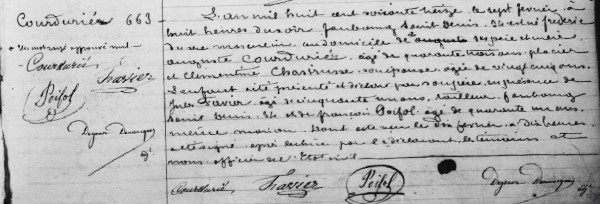 Courdurié 663
L'an mil huit cent soixante treize le sept février à
huit heures du soir faubourg Saint Denis 34 est né frédéric
du sexe masculin, au domicile de ses père et mère
auguste Courdurié, âgé de quarante trois ans, placier
et Clémentine Chastrusse, son épouse, âgée de vingt cinq ans.
L'enfant été présenté et déclaré par son père, en présence de
Jules Favier, âgé de cinquante un ans, tailleur, faubourg
Saint Denis, 34 et de françois Poifol, âgé de quarante un ans
même maison. Dont acte reçu le dix février, à dix heures
et signé, après lecture par le déclarant, les témoins et
nous officier de l'Etat civil.
+ Un mot rayé approuvé nul
Courdurié
Favier
Poifol
adj.
Courdurié Favier Poifol adj.